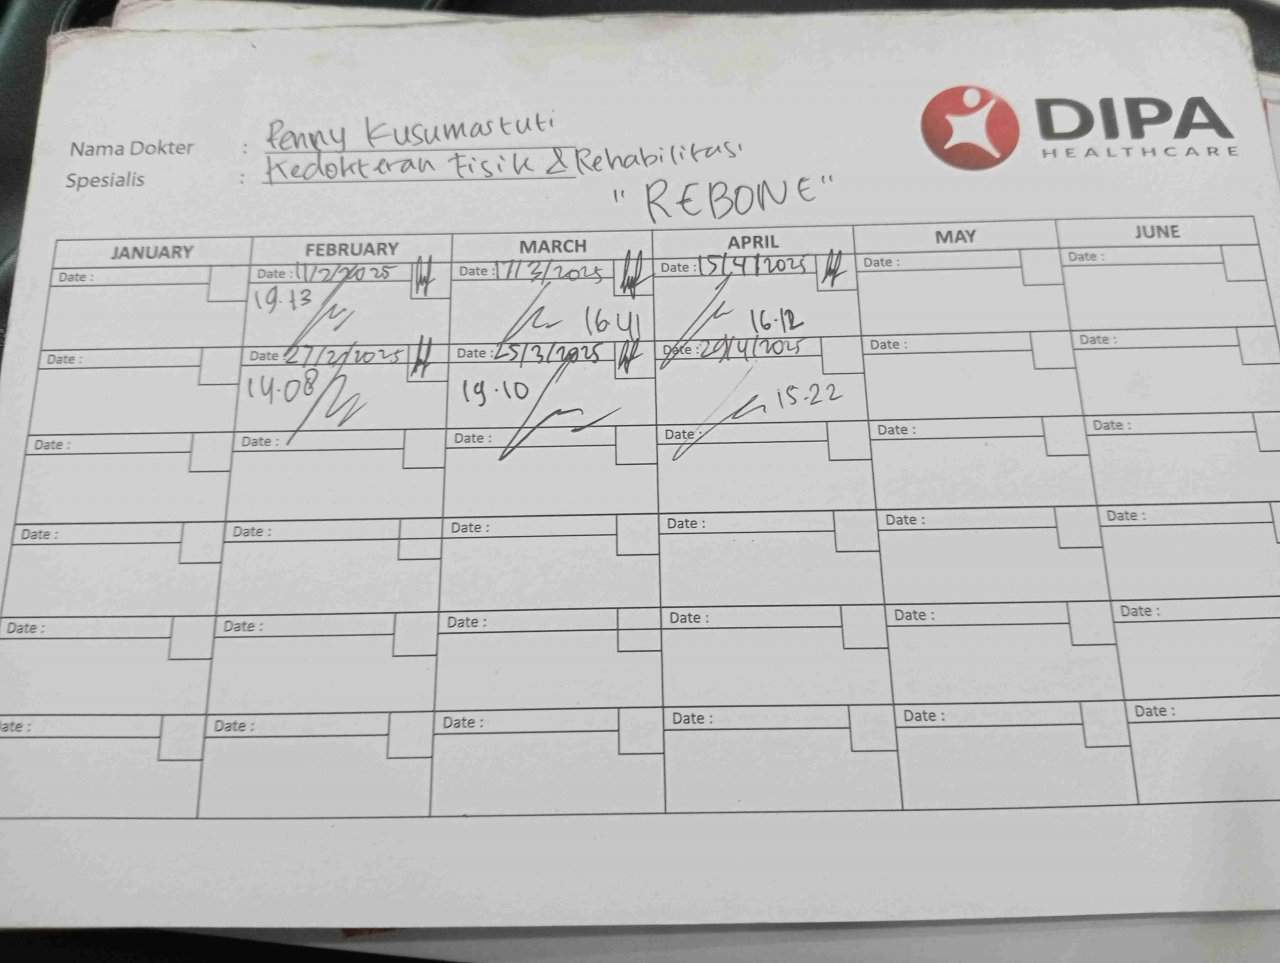 DIPA
HEALTHCARE
Nama Dokter : Penny Kusumastuti
Spesialis : Kedokteran Fisik & Rehabilitasi
"REBONE"
JANUARY FEBRUARY MARCH APRIL MAY JUNE
Date : Date : 11/2/2025 Date : 17/3/2025 Date : 15/4/2025 Date : Date :
19.13 16.41 16.12
Date : Date : 27/2/2025 Date : 25/3/2025 Date : 29/4/2025 Date : Date :
14.08 19.10 15.22
Date : Date : Date : Date : Date : Date :
Date : Date : Date : Date : Date : Date :
Date : Date : Date : Date : Date : Date :
ate : Date : Date : Date : Date : Date :